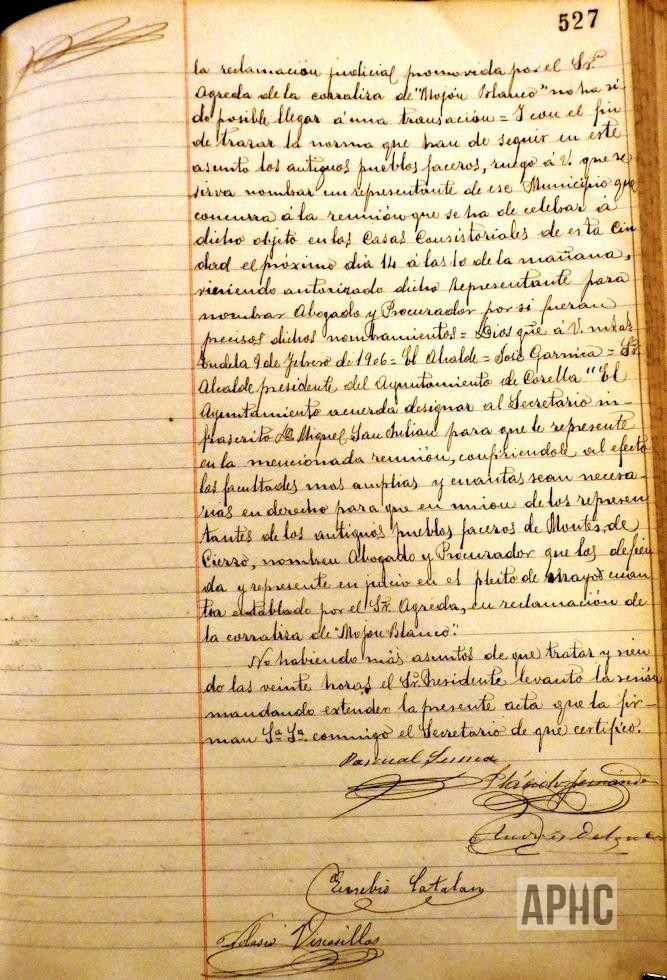 527
la reclamación judicial promovida por el Sr.
Agreda de la corraliza de "Mojón Blanco" no ha si
do posible llegar á una transacion = Y con el fin
de trazar la norma que han de seguir en este
asunto los antiguos pueblos faceros, ruego á V. que se
sirva nombrar un representante de ese Municipio que
concurra á la reunión que se ha de celebrar á
dicho objeto en las Casas Consistoriales de esta Ciu
dad el próximo dia 14 á las 10 de la mañana,
viniendo autorizado dicho Representante para
nombrar Abogado y Procurador por si fueran
precisos dichos nombramientos = Dios gue á V. ms as
Tudela 9 de Febrero de 1906 = El Alcalde = José Garnica = Sr.
Alcalde presidente del Ayuntamiento de Corella "El
Ayuntamiento acuerda designar al Secretario in-
frascrito D. Miguel San Julian para que le represente
en la mencionada reunión, confiriendole al efecto
las facultades mas amplias y cuantas sean necesa-
rias en derecho para que en union de los represen
tantes de los antiguos pueblos faceros de Montes de
Cierzo, nombren Abogado y Procurador que los defien
da y represente en juicio en el pleito de mayor cuan
tia entablado por el Sr. Agreda, en reclamación de
la corraliza de "Mojon Blanco".
No habiendo más asuntos de que tratar y sien
do las veinte horas el Sr. Presidente levanto la sesión
mandando extender la presente acta que la fir-
man Sª. Sª. conmigo el Secretario de que certifico.
Pascual
Fernández
Andrés Delgado
Eusebio Catalan
Virasillas
APHC